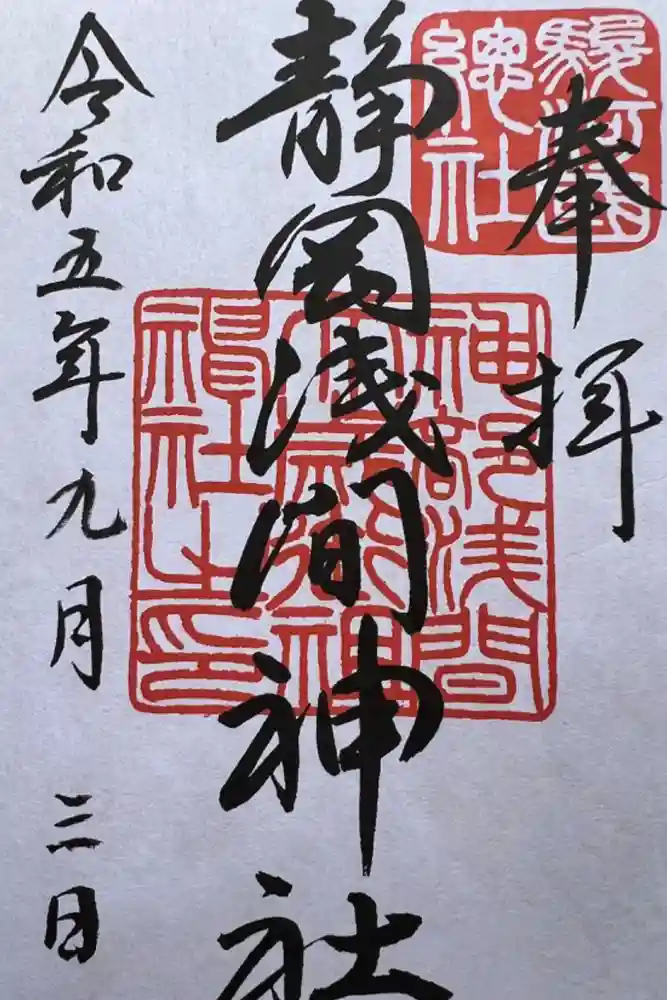 奉拝
駿河國
總社
静岡浅間神社
神部浅間
大歳御祖
神社之印
令和五年九月三日